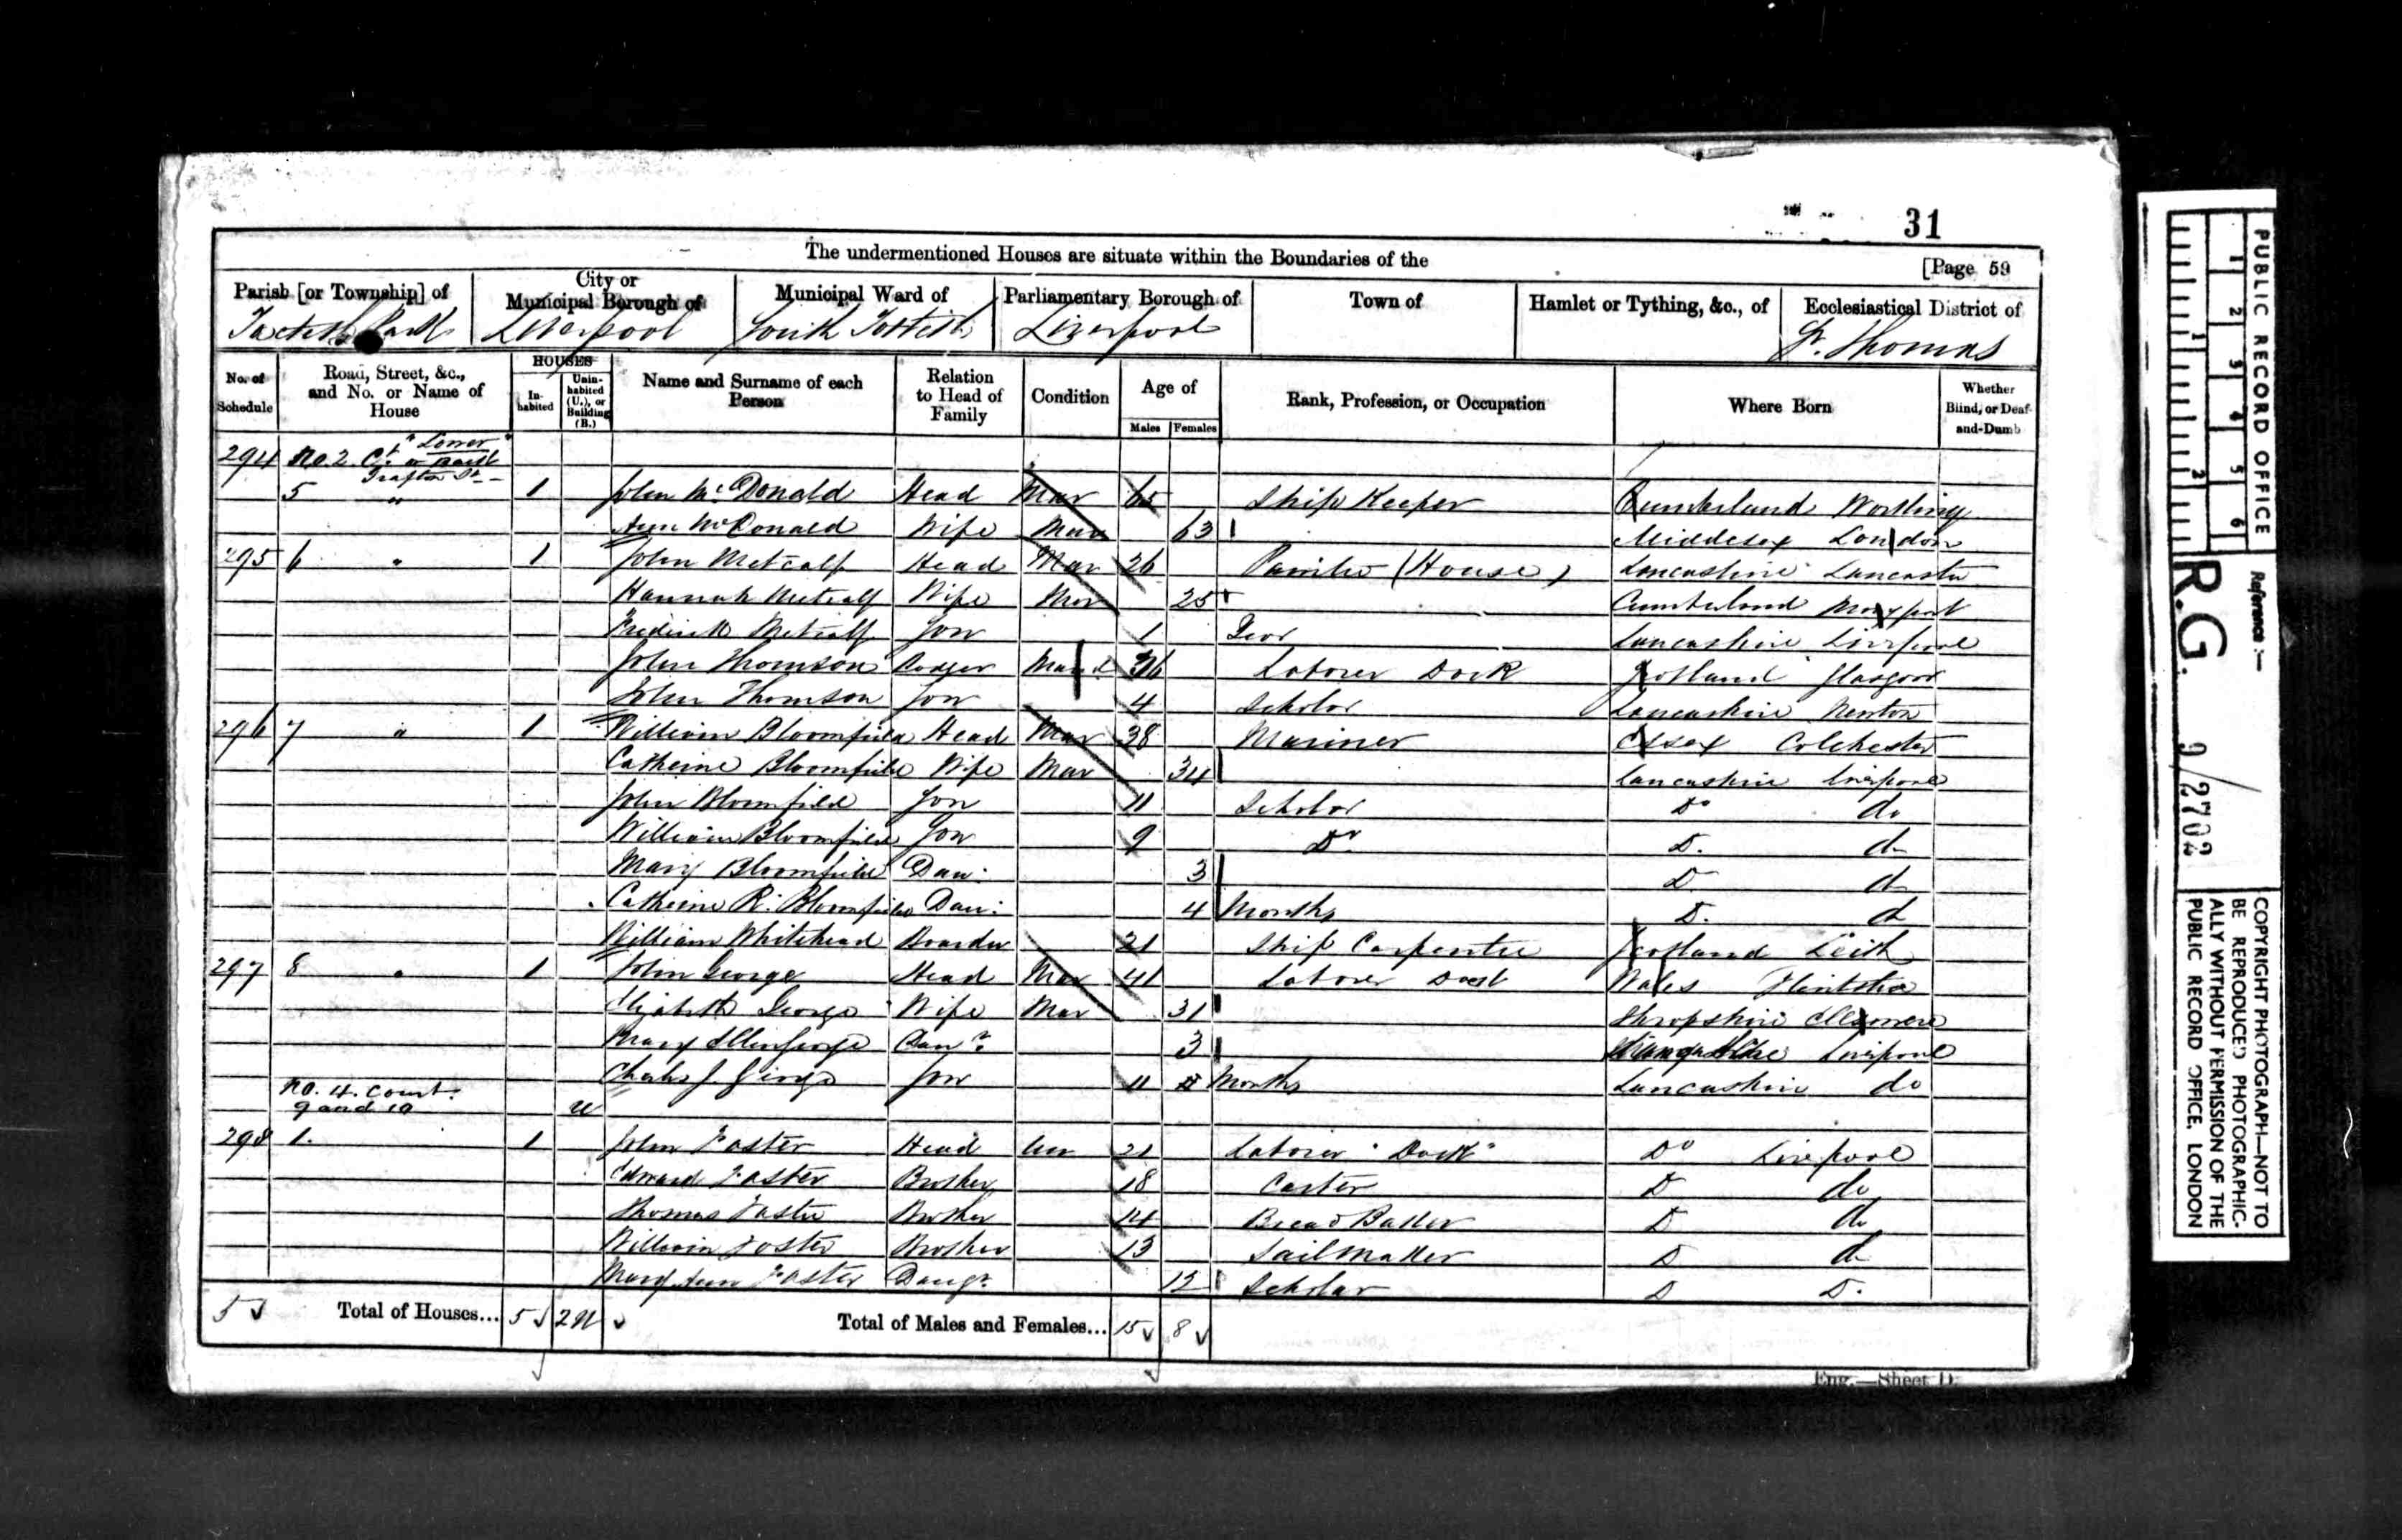 31
The undermentioned Houses are situate within the Boundaries of the
[Page 59
Parish [or Township] of
City or Municipal Borough of
Municipal Ward of
Parliamentary Borough of
Town of
Hamlet or Tything, &c., of
Ecclesiastical District of
Toxteth Park Liverpool South Toxteth Liverpool St. Thomas
No. of Schedule
Road, Street, &c., and No. or Name of House
HOUSES
In-habited
Unin-habited (U.), or Building (B.)
Name and Surname of each Person
Relation to Head of Family
Condition
Age of
Males Females
Rank, Profession, or Occupation
Where Born
Whether Blind, or Deaf-and-Dumb
294 No. 2. Ct. "Lower"
Grafton St.
5 " 1 John McDonald Head Mar 65 Ship Keeper Cumberland
Ann McDonald Wife Mar 63 Middlesex London
295 6 " 1 John Metcalf Head Mar 26 Painter (House) Lancashire Lancaster
Hannah Metcalf Wife Mar 25 Cumberland Maryport
Frederick Metcalf Son 1 Lancashire Liverpool
John Thomson Lodger 36 Laborer Dock Scotland Glasgow
John Thomson Son 4 Scholar Lancashire Newton
296 7 " 1 William Bloomfield Head Mar 38 Mariner Essex Colchester
Catherine Bloomfield Wife Mar 34 Lancashire Liverpool
John Bloomfield Son 11 Scholar Do do
William Bloomfield Son 9 Do D. do
Mary Bloomfield Dau: 3 D. do
Catherine R. Bloomfield Dau: 4 Months D. do
William Whitehead Boarder 21 Ship Carpenter Scotland Leith
297 8 " 1 John George Head Mar 41 Laborer Dock Wales Flintshire
Elizabeth George Wife Mar 31 Shropshire Ellesmere
Mary Ellen George Daur. 3 Liverpool
Charles J. George Son 11 Months Lancashire do
No. 4. Court.
9 and 10 U
298 1. 1 John Foster Head Un 21 Laborer "Dock" Do Liverpool
Edward Foster Brother 18 Carter D do
Thomas Foster Brother 14 Bread Baker D do
William Foster Brother 13 Sail Maker D do
Mary Ann Foster Daugr. 12 Scholar D D.
5 Total of Houses... 5 2U Total of Males and Females... 15 8
Eng.—Sheet D.
PUBLIC RECORD OFFICE
1 2 3 4 5 6
1 2
Reference:—
R.G. 9/2702
COPYRIGHT PHOTOGRAPH—NOT TO
BE REPRODUCED PHOTOGRAPHIC-
ALLY WITHOUT PERMISSION OF THE
PUBLIC RECORD OFFICE, LONDON